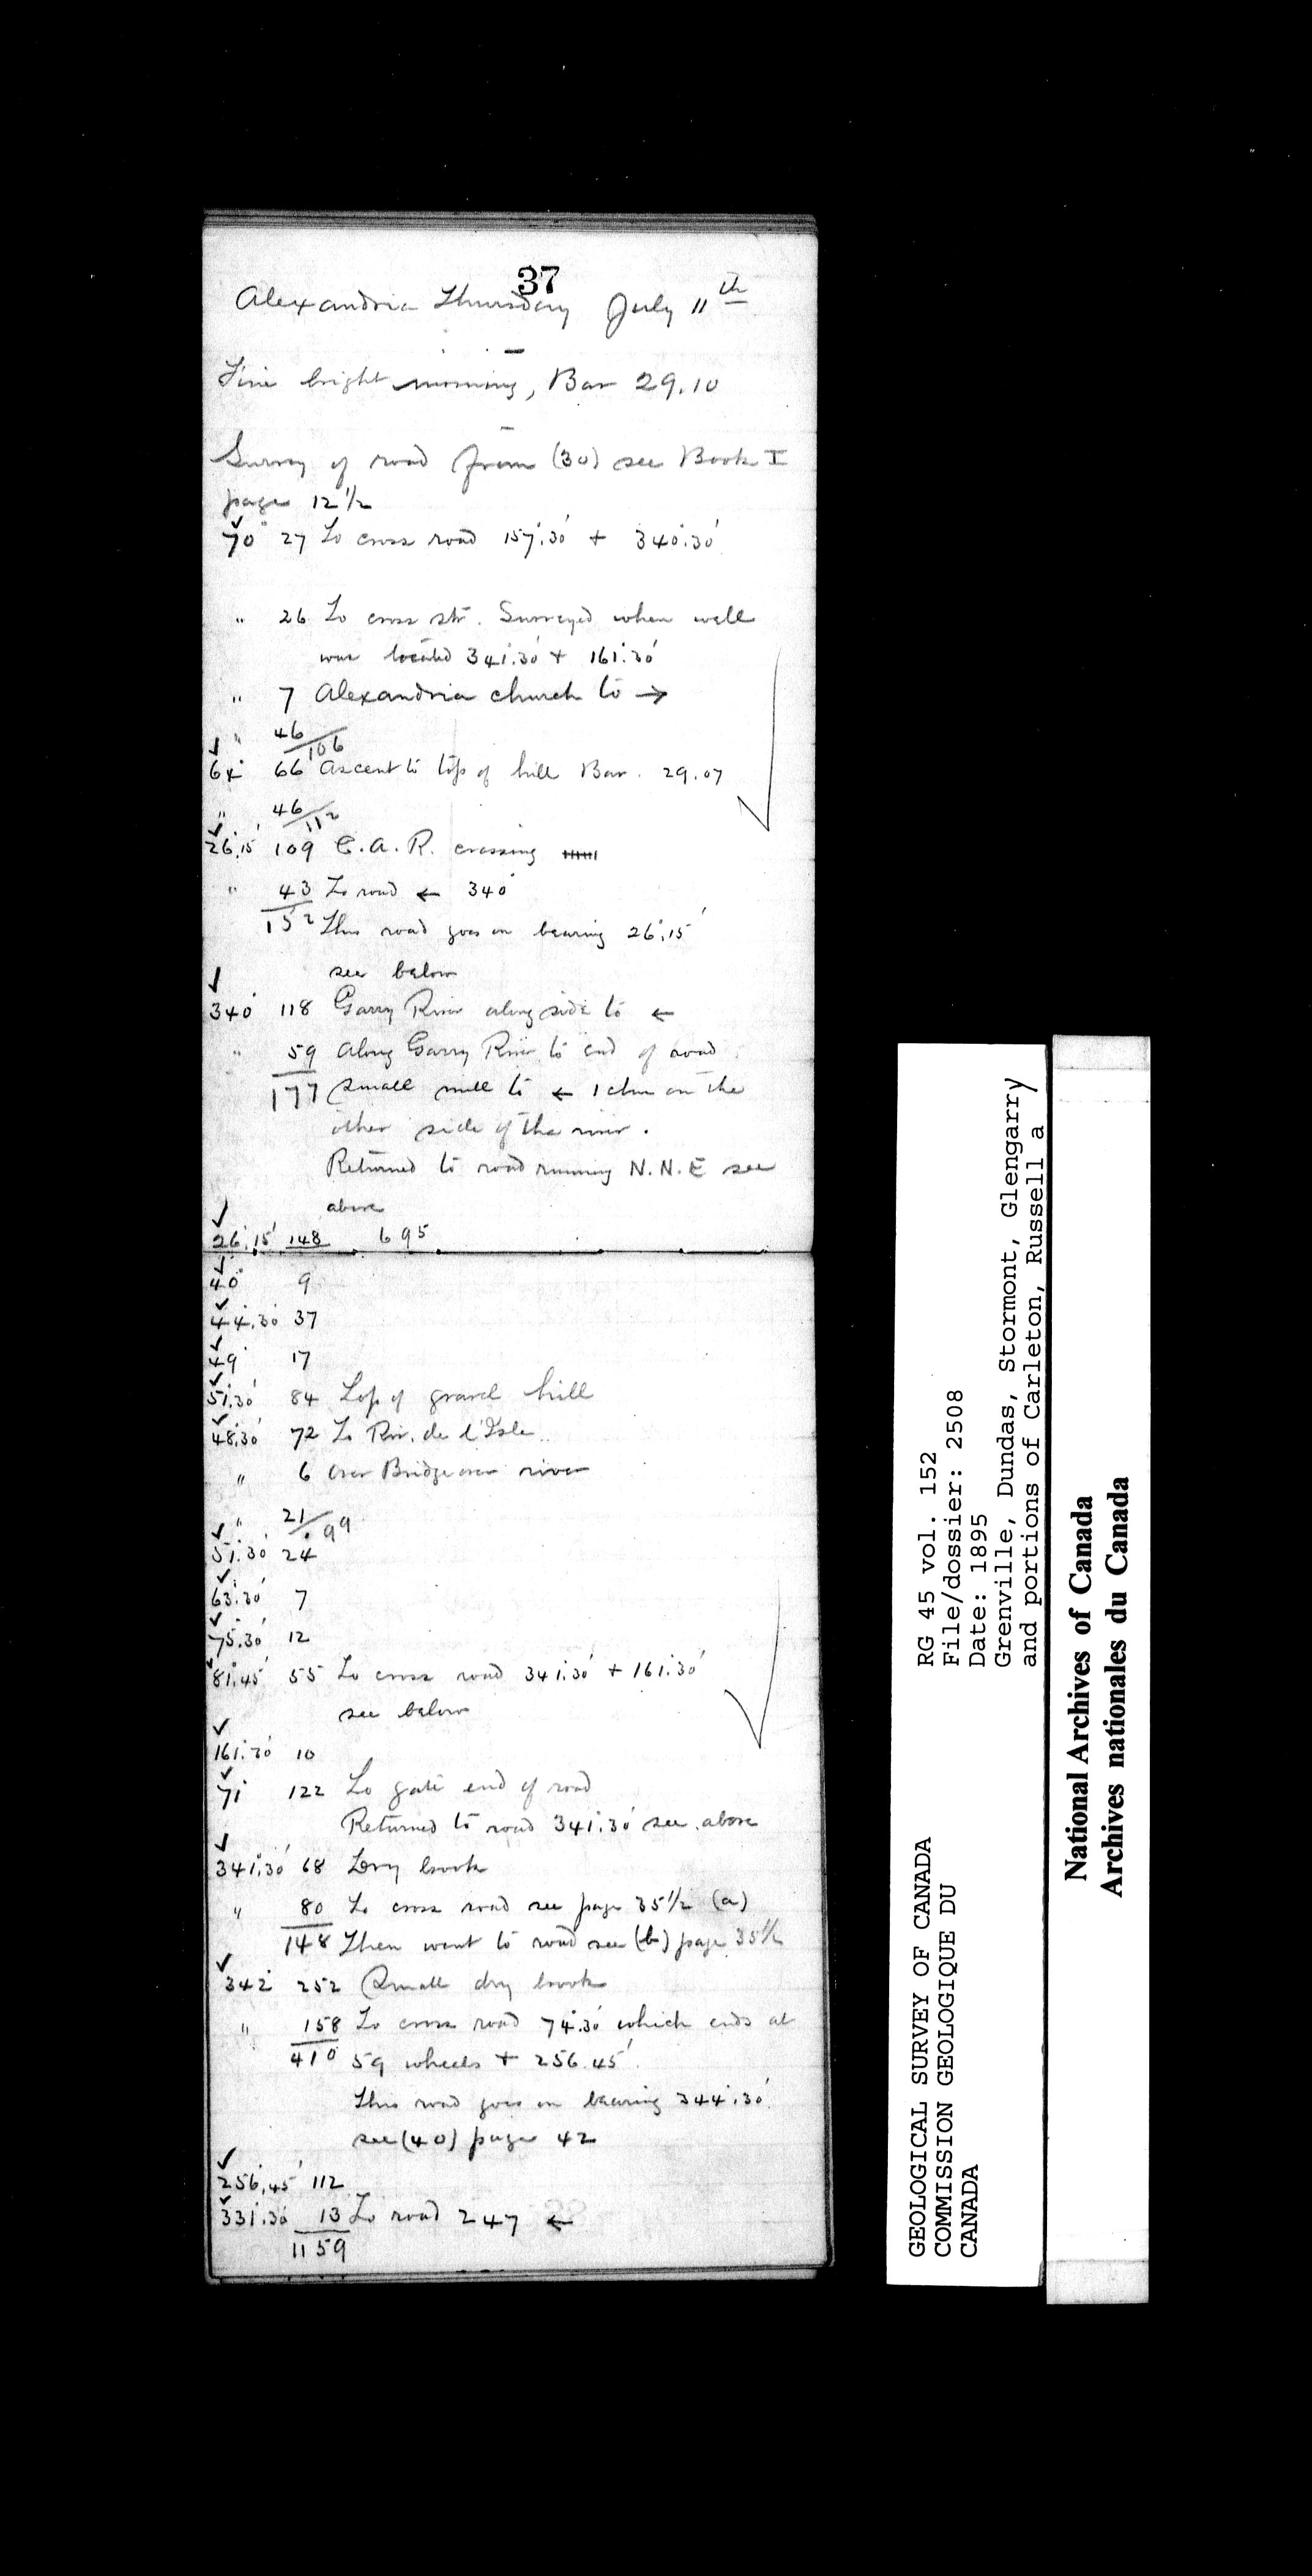 37
Alexandria Thursday July 11th
Fine bright morning, Bar 29.10
Survey of road from (30) see Book I
page 12 1/2
70° 27 To cross road 157°.30' + 340°.30'
" 26 To cross str. Surveyed when well
was located 341°.30' + 161°.30'
" 7 Alexandria church to →
" 46/106
64° 66 Ascent to top of hill Bar. 29.07
" 46/112
26°.15' 109 C.A.R. crossing
" 43 To road ← 340°
152 This road goes on bearing 26°.15'
see below
340° 118 Garry River along side to ←
" 59 Along Garry River to end of road
177 Small mill to ← 1 chn on the
other side of the river.
Returned to road running N.N.E see
above
26°.15' 148 695
40° 9
44°.30' 37
49° 17
51°.30' 84 Top of gravel hill
48°.30' 72 To Riv. de l'Isle
" 6 Over Bridge over river
" 21/99
51°.30' 24
63°.30' 7
75°.30' 12
81°.45' 55 To cross road 341°.30' + 161°.30'
see below
161°.30' 10
71° 122 To gate end of road
Returned to road 341°.30' see above
341°.30' 68 Dry brook
" 80 To cross road see page 35 1/2 (a)
148 Then went to road see (b) page 35 1/2
342° 252 Small dry brook
" 158 To cross road 74°.30' which ends at
410 59 wheels + 256°.45'
This road goes on bearing 344°.30'
see (40) page 42
256°.45' 112
331°.30' 13 To road 247 ←
1159
GEOLOGICAL SURVEY OF CANADA
COMMISSION GEOLOGIQUE DU
CANADA
RG 45 vol. 152
File/dossier: 2508
Date: 1895
Grenville, Dundas, Stormont, Glengarry
and portions of Carleton, Russell a
National Archives of Canada
Archives nationales du Canada